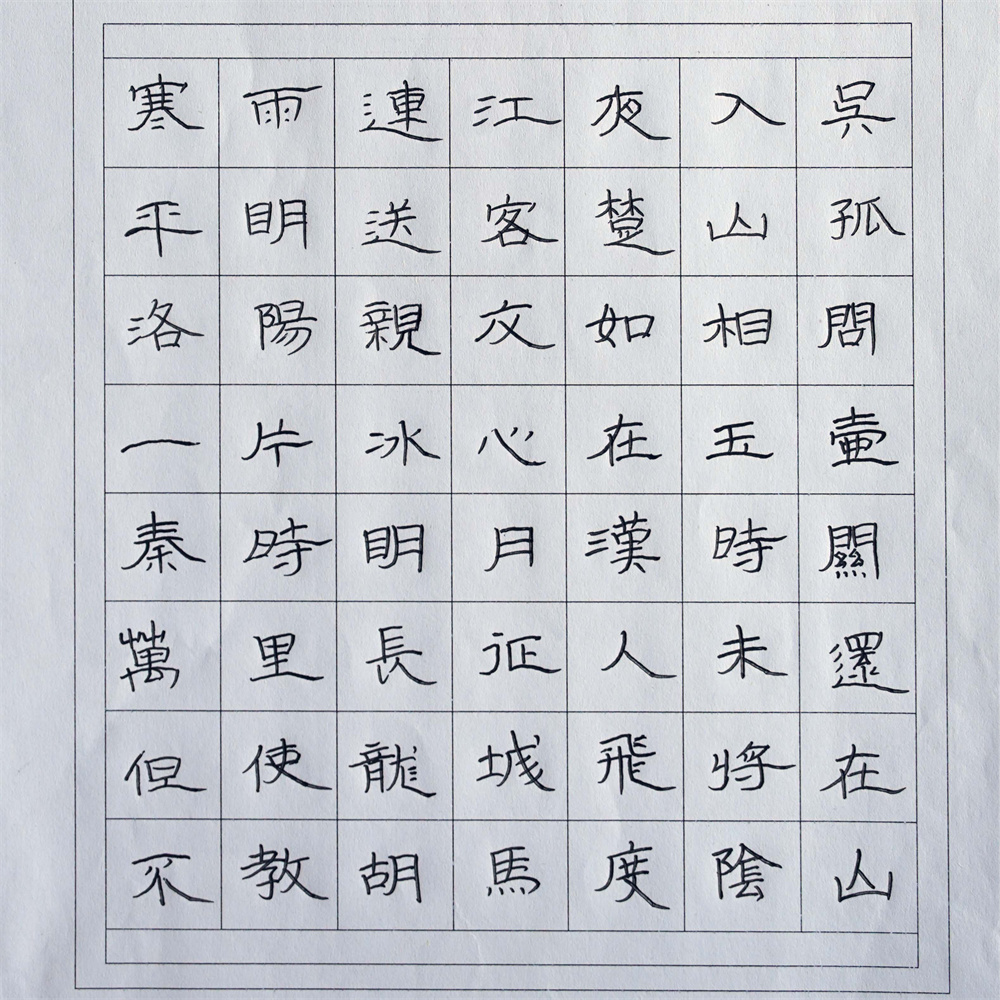 寒雨連江夜入吳
平明送客楚山孤
洛陽親友如相問
一片冰心在玉壷
秦時明月漢時關
萬里長征人未還
但使龍城飛將在
不教胡馬度陰山